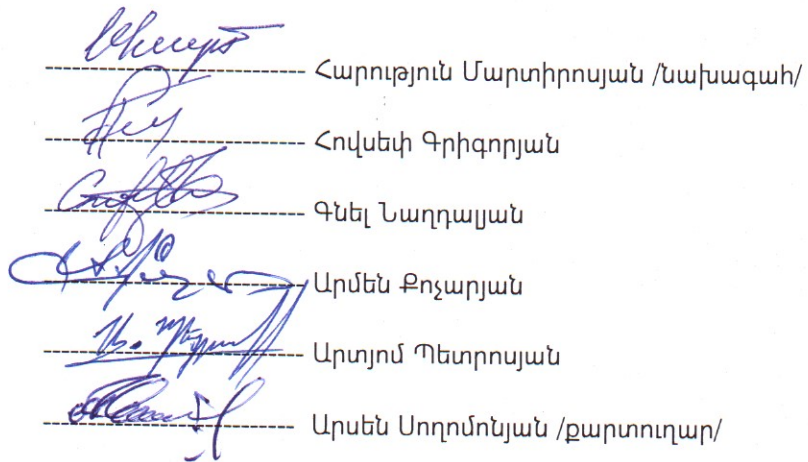 -------------------------- Հարություն Մարտիրոսյան /նախագահ/
-------------------------- Հովսեփ Գրիգորյան
-------------------------- Գնել Նաղդալյան
-------------------------- Արմեն Քոչարյան
-------------------------- Արտյոմ Պետրոսյան
-------------------------- Արսեն Սողոմոնյան /քարտուղար/